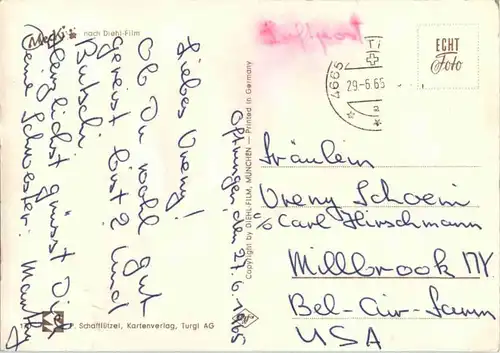 Mecki nach Diehl-Film
Oftringen den 27.6.1965
Liebes Vreny!
Ob Du wohl gut
gereist bist? Und
Butschi
Herzlichst grüsst Dich
Deine Schwester
Luftpost
4665
29-6.65
ECHT
Foto
Fräulein
Vreny Schoeni
c/o Carl Hirschmann
Millbrook NY.
Bel-Air-Farm
USA
Copyright by DIEHL-FILM, MÜNCHEN — Printed in Germany
P. Schafflützel, Kartenverlag, Turgi AG